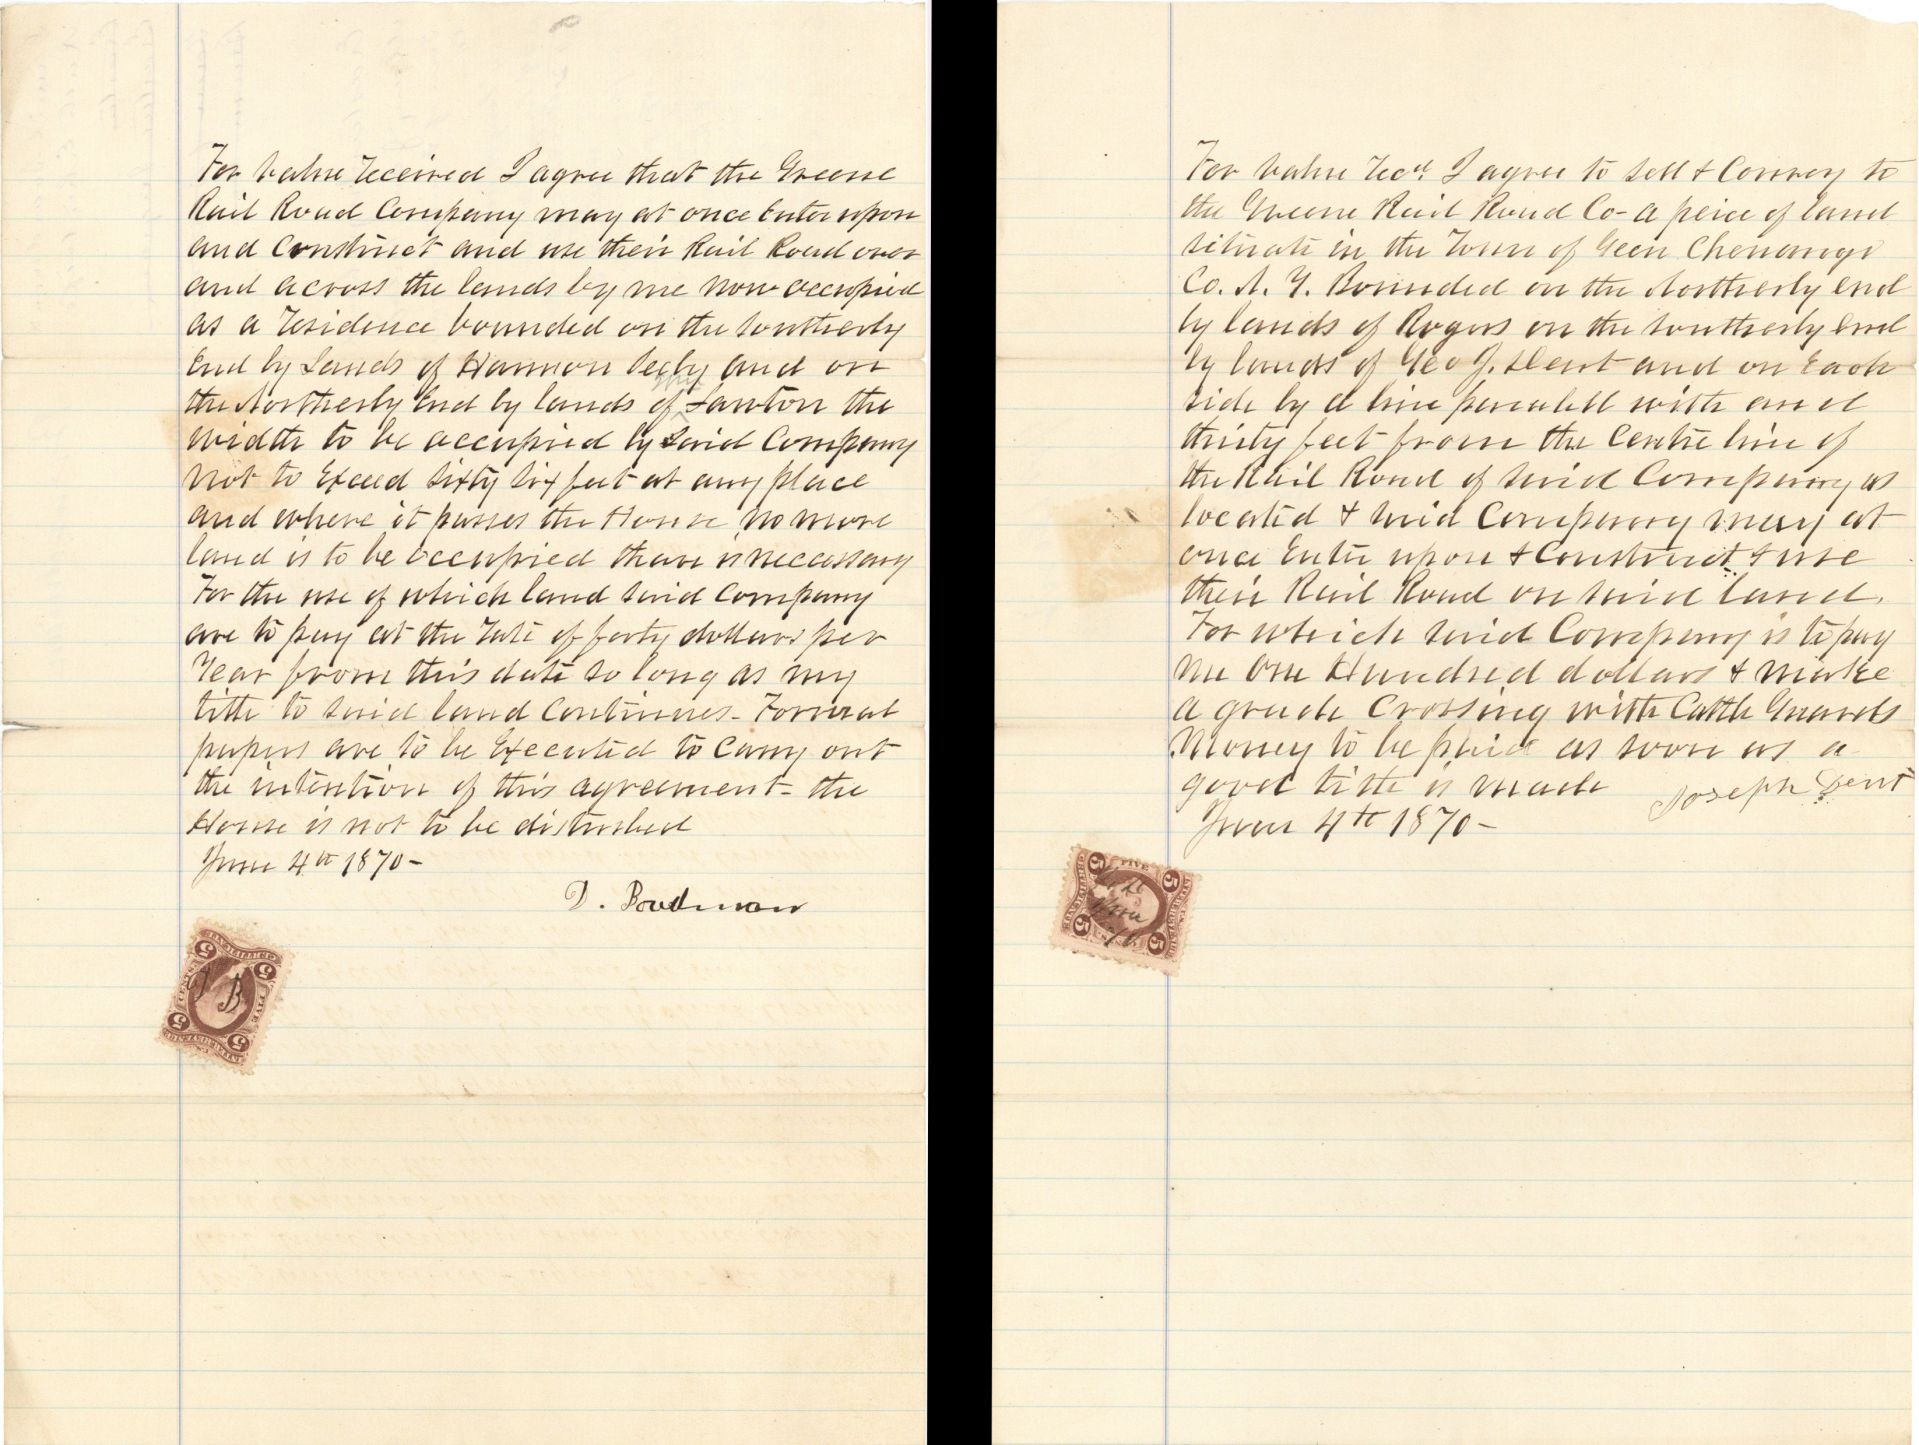 For value received I agree that the Greene
Rail Road Company may at once Enter upon
and construct and use their Rail Road over
and across the lands by me now occupied
as a residence bounded on the southerly
End by Lands of Harmon Seely and on
the Northerly End by lands of Lawton the
width to be occupied by Said Company
Not to Exceed sixty six feet at any place
and where it passes the House no more
land is to be occupied than is neccessary
For the use of which land said Company
are to pay at the rate of forty dollars per
Year from this date so long as my
title to said land continues - Formal
papers are to be Executed to carry out
the intention of this agreement - the
House is not to be disturbed
June 4th 1870 -
D. Boardman
5 5 5 5
FIVE CENTS
B
For value Recd. I agree to sell & Convey to
the Greene Rail Road Co - a peice of land
situate in the Town of Geen Chenango
Co. N. Y. Bounded on the Northerly end
by lands of Rogers on the southerly End
by lands of Geo J. Dent and on Each
side by a line paralell with and
thirty feet from the Centre line of
the Rail Road of said Company as
located & said Company may at
once Enter upon & Construct & use
their Rail Road on said land.
For which said Company is to pay
me one Hundred dollars & make
a grade Crossing with Cattle Guards
Money to be paid as soon as a
good title is made Joseph Dent
June 4th 1870 -
5 FIVE 5
5 5